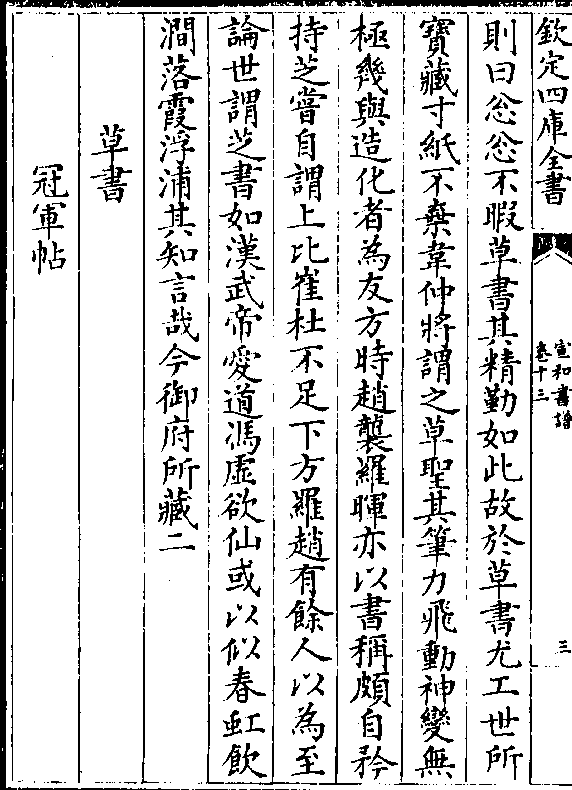 欽定四庫全書
宣和書譜
卷十三
三
則曰忩忩不暇草書其精勤如此故於草書尤工世所
寶藏寸紙不棄韋仲將謂之草聖其筆力飛動神變無
極幾與造化者為友方時趙襲羅暉亦以書稱頗自矜
持芝嘗自謂上比崔杜不足下方羅趙有餘人以為至
論世謂芝書如漢武帝愛道馮虛欲仙或以似春虹飲
澗落霞浮浦其知言哉今御府所藏二
草書
冠軍帖